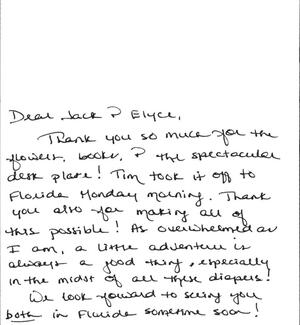 Dear Jack & Elyce,
Thank you so much for the
flowers, books, & the spectacular
desk plate! Tim took it off to
Florida Monday morning. Thank
you also for making all of
this possible! As overwhelmed as
I am, a little adventure is
always a good thing, especially
in the midst of all these diapers!
We look forward to seeing you
both in Florida sometime soon!